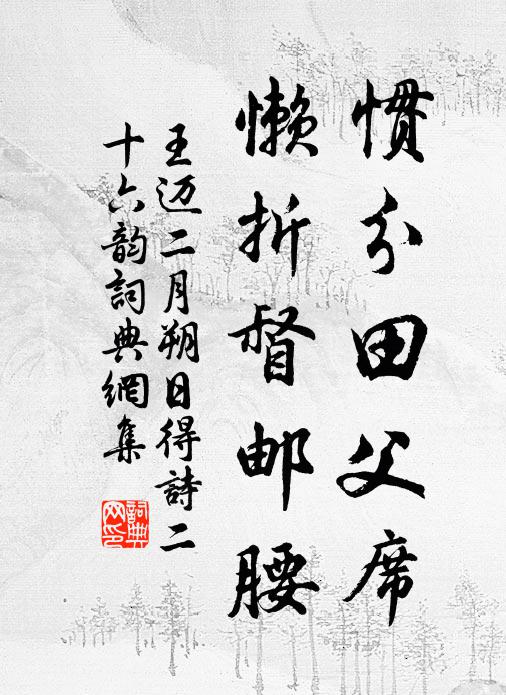 惯分田父席
懒折督邮腰
王迈二月朔日得詩二
十六韵詞典網集
詞典网印